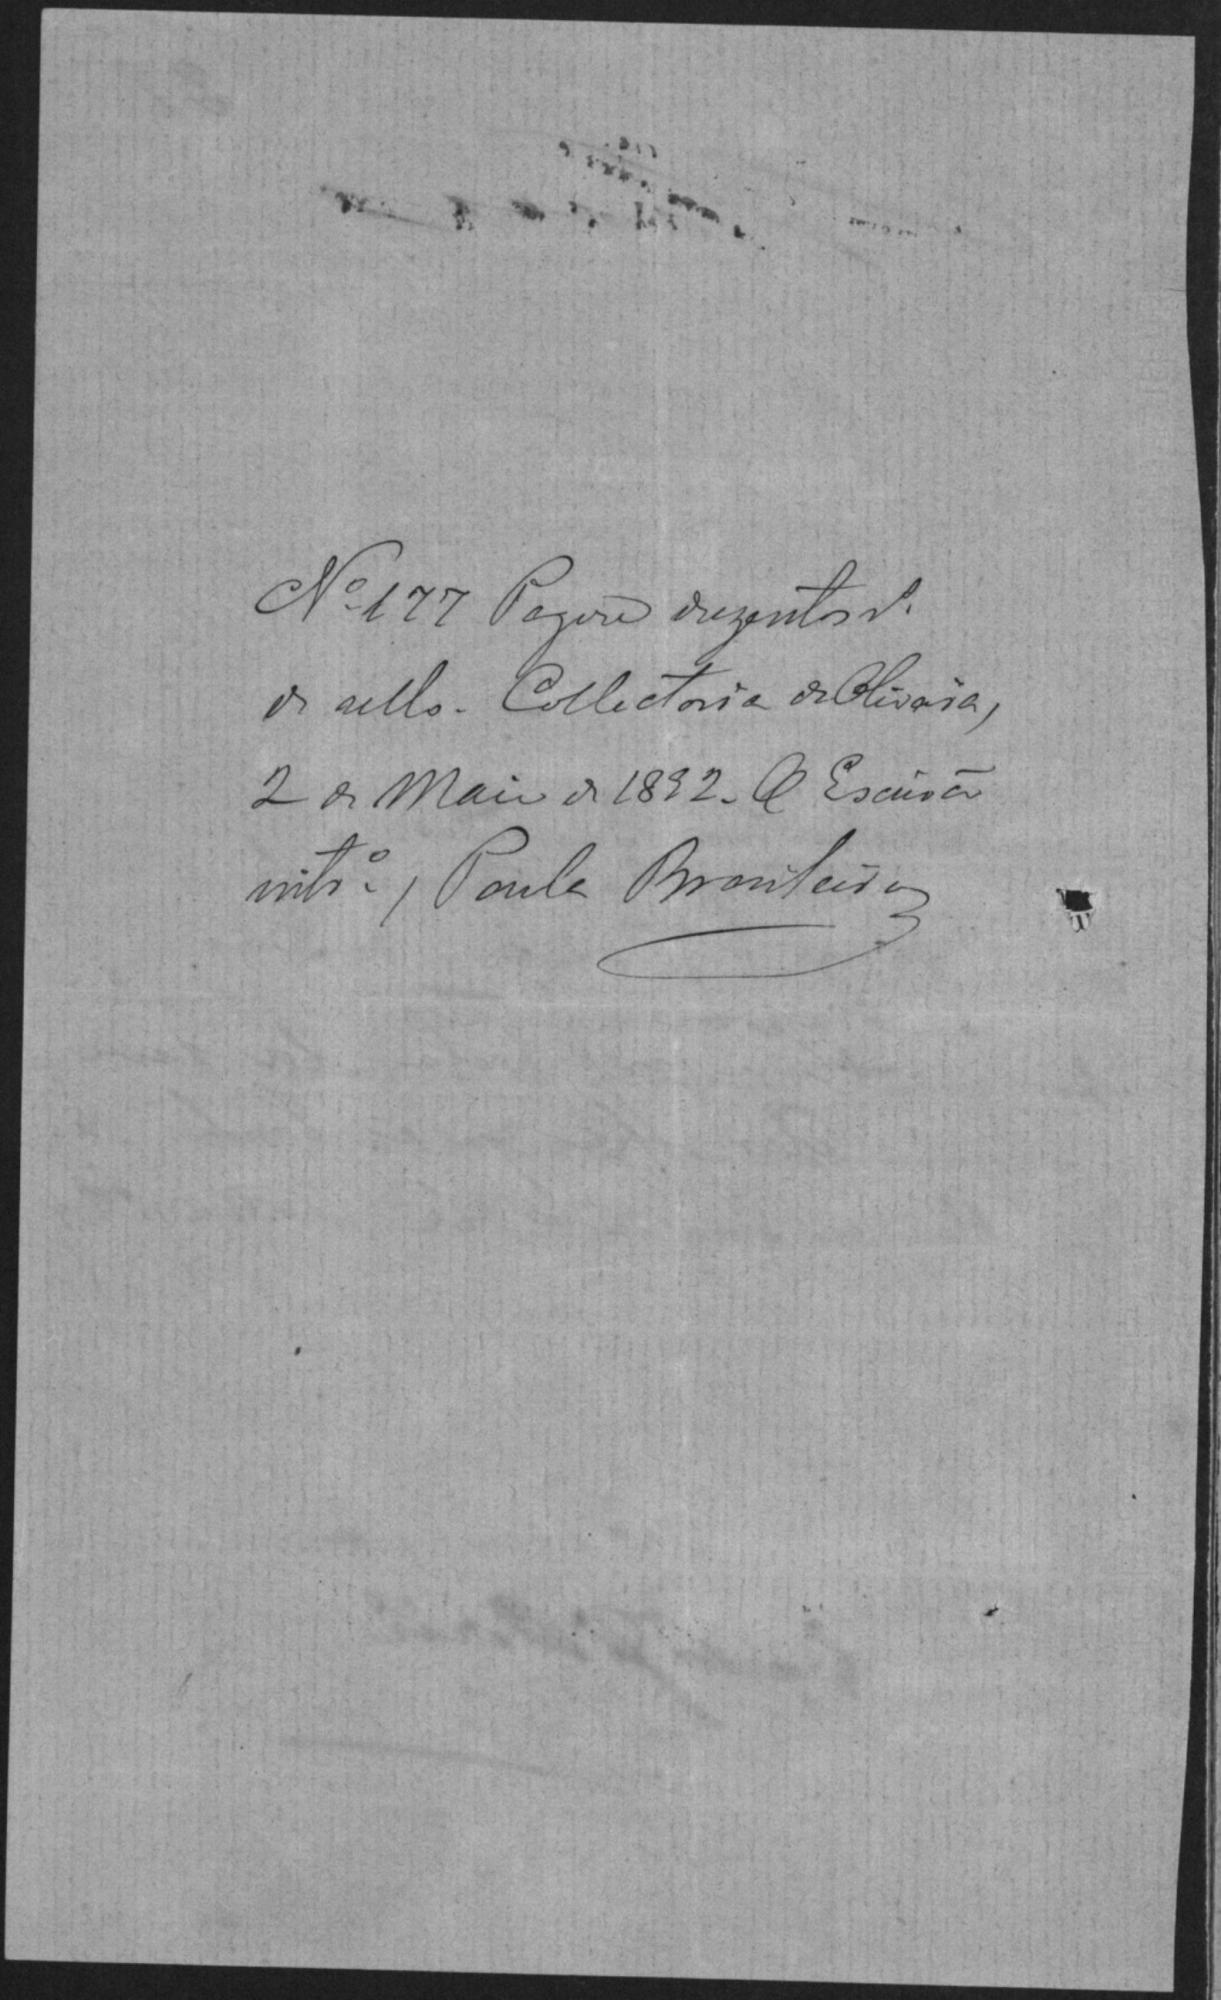 Nº 177 Pagou duzentos rs.
de sello. Collectoria de Oliveira,
2 de Maio de 1892. O Escrivão
intrº, Paula Brasileiro